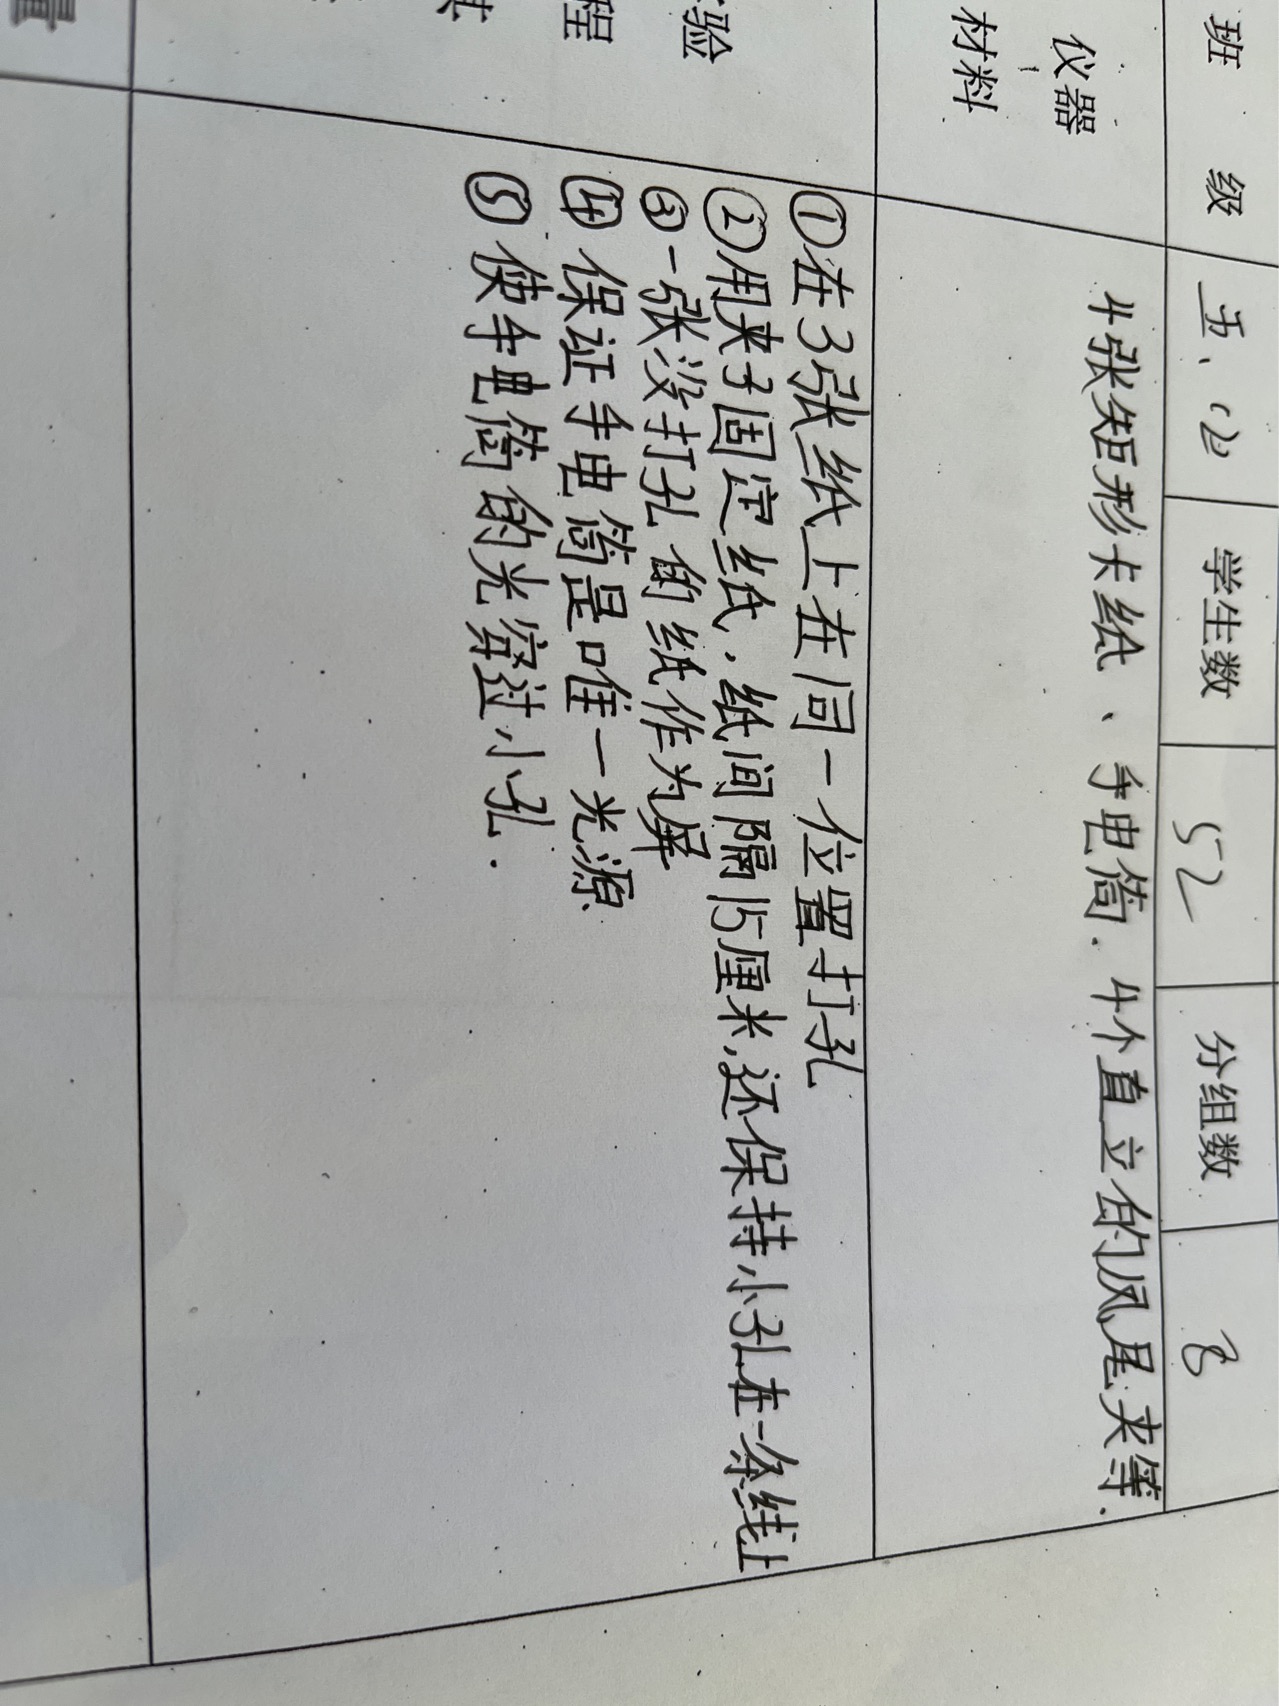 班 级 五、(2) 学生数 52 分组数 8
仪器 4张矩形卡纸、手电筒.4个直立的凤尾夹等.
材料
①在3张纸上在同一位置打孔
验 ②用夹子固定纸.纸间隔15厘米,还保持小孔在一条线上
③一张没打孔的纸作为屏
程 ④保证手电筒是唯一光源.
⑤使手电筒的光穿过小孔.
量